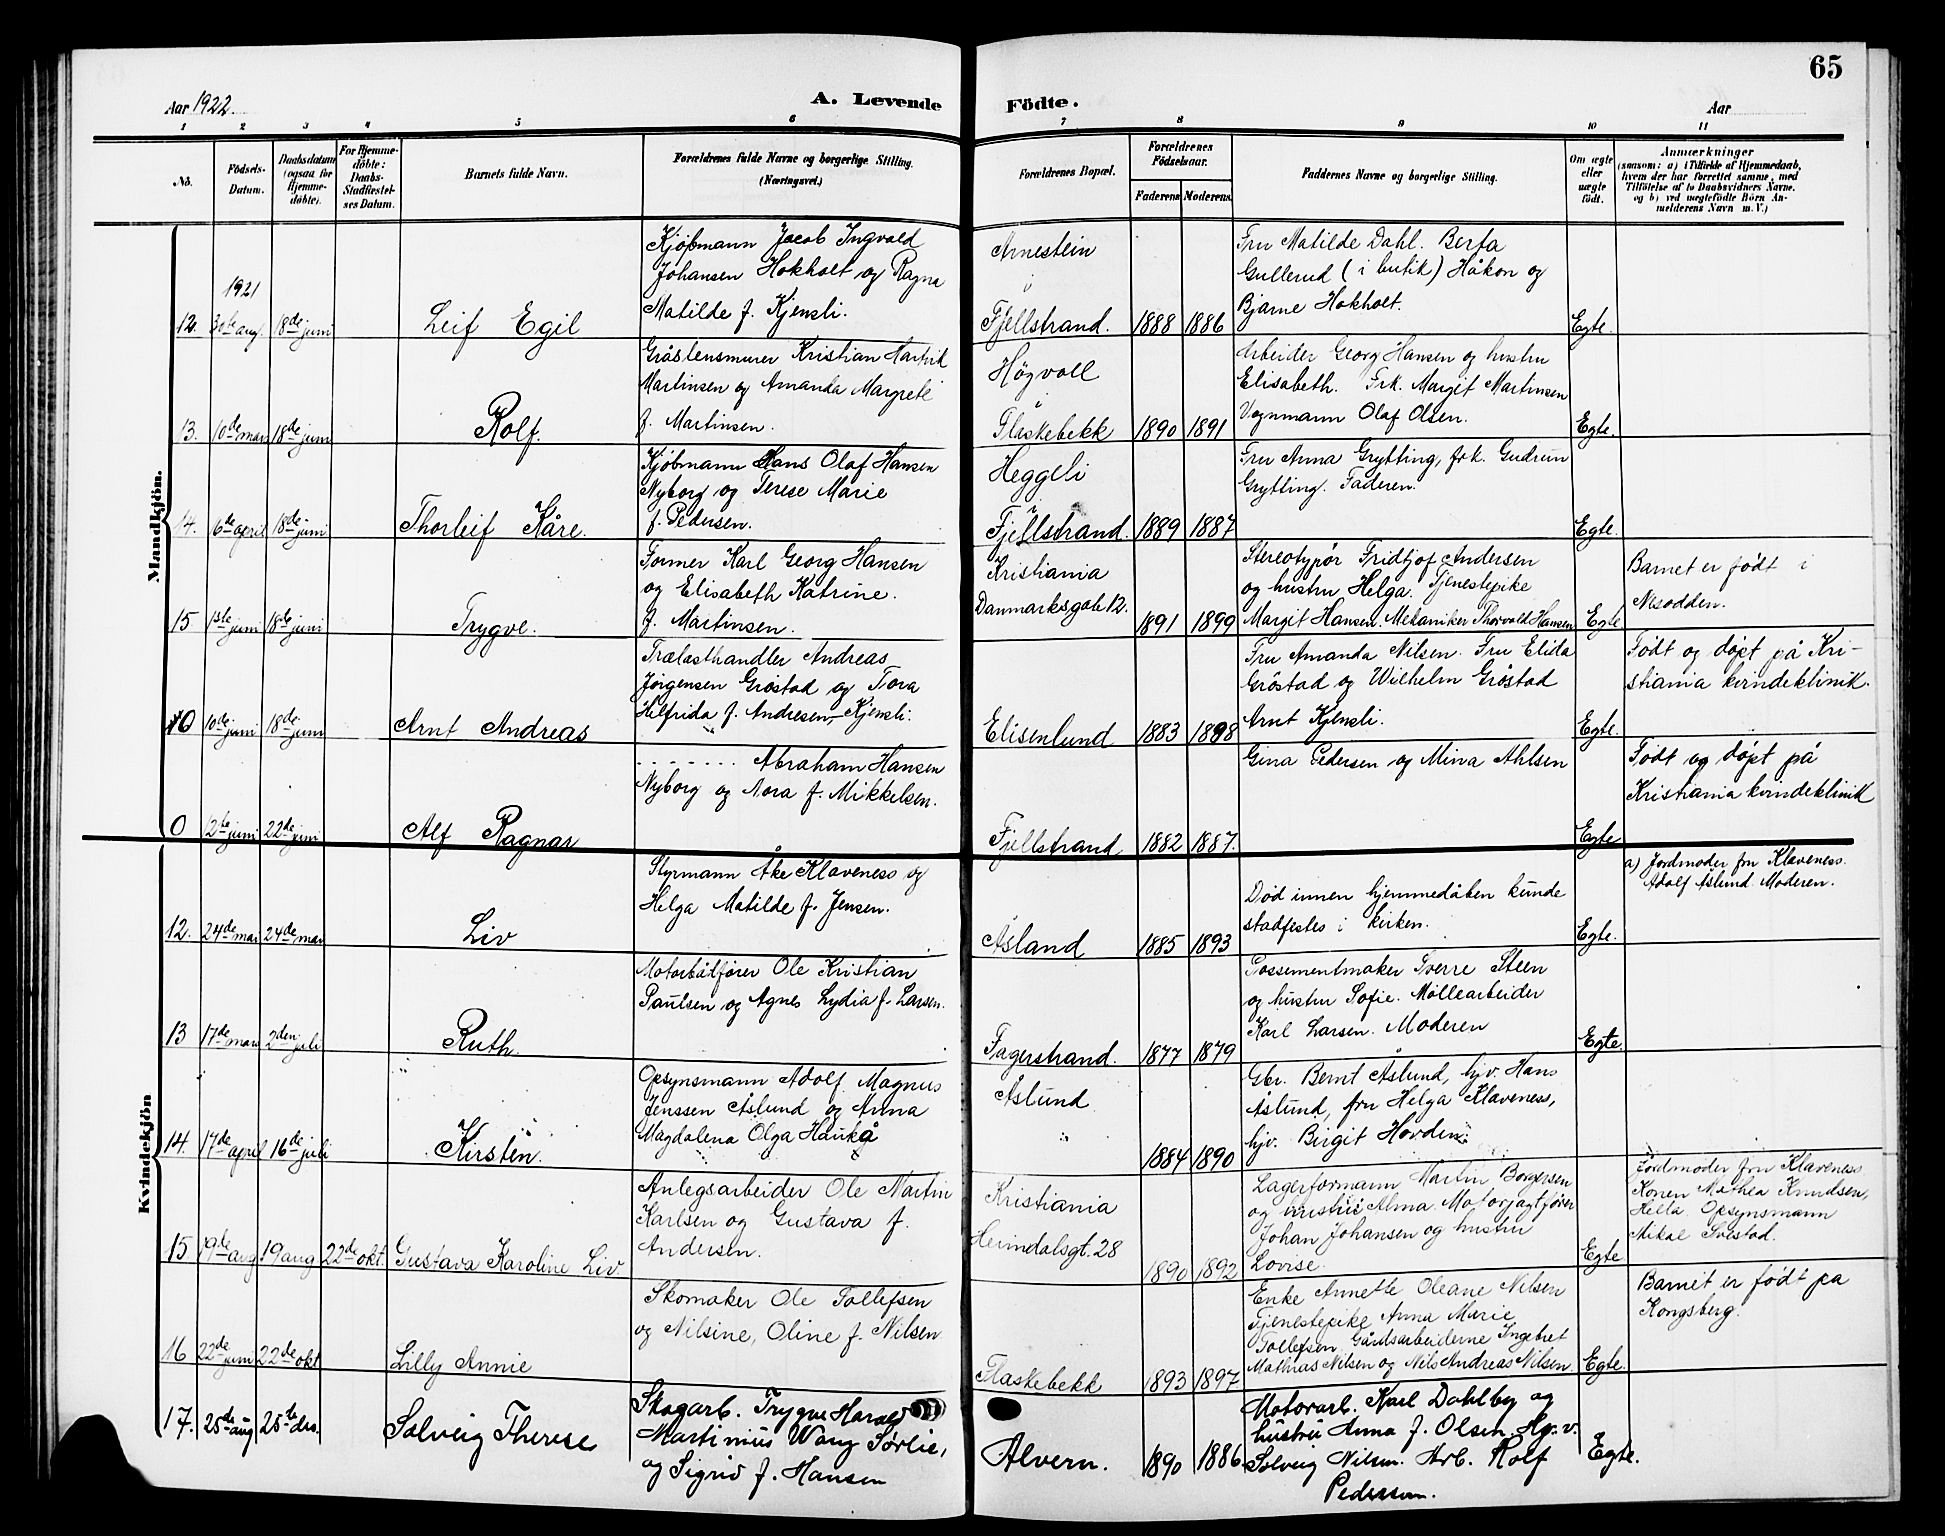 65
Aar 1922.
A. Levende Födte.
Aar
1 2 3 4 5 6 7 8 9 10 11
No.
Födsels-Datum.
Daabsdatum (ogsaa for Hjemme-döbte).
For Hjemme-döbte: Daabs-Stadfæstel-ses Datum.
Barnets fulde Navn.
Forældrenes fulde Navne og borgerlige Stilling. (Næringsvei.)
Forældrenes Bopæl.
Forældrenes Födselsaar.
Faderens Moderens
Faddernes Navne og borgerlige Stilling.
Om ægte eller uægte födt.
Anmærkninger
(saasom: a) i Tilfælde af Hjemmedaab,
hvem der har forrettet samme, med
Tilföielse af to Daabsvidners Navne.
og b) ved uægtefödte Börn An-
melderens Navn m. V.)
Mandkjön.
1921
Kjøbmann Jacob Ingvald
Johansen Hokholt og Ragna
Matilde f. Kjensli.
Arnestein
i
Fjellstrand.
Fru Matilde Dahl. Berta
Gullerud (i butik) Håkon og
Bjarne Hokholt.
12. 30te aug. 18de juni Leif Egil 1888 1886 Egte.
Gråstensmurer Kristian Hartvik
Martinsen og Amanda Margrete
f. Martinsen.
Högvoll
Flaskebekk
Arbeider Georg Hansen og hustru
Elisabeth. Frk. Margit Martinsen
Vognmann Olaf Olsen.
13. 10de mars 18de juni Rolf. 1890 1891 Egte.
Kjöbmann Hans Olaf Hansen
Nyborg og Terese Marie
f. Pedersen.
Heggeli
i
Fjellstrand.
Fru Anna Grytting, frk. Gudrun
Grytting. Faderen.
14. 6de april 18de juni Thorleif Kåre. 1889 1887 Egte.
Former Karl Georg Hansen
og Elisabeth Katrine
f. Martinsen.
Kristiania
Danmarksgate 12.
Stereotypör Fridtjof Andersen
og hustru Helga. Tjenestepike
Margit Hansen. Mekaniker Thorvald Hansen
Barnet er født i
Nesodden.
15 1ste juni 18de juni Trygve. 1891 1899 Egte
Trælasthandler Andreas
Jørgensen Gröstad og Tora
Hilfrida f. Andresen, Kjensli.
Fru Amanda Nilsen. Fru Elida
Gröstad og Wilhelm Gröstad
Arnt Kjensli.
Født og døpt på Kri-
stiania kvindeklinik.
0 10de juni 18de juni Arnt Andreas Elisenlund 1883 1898 Egte.
Abraham Hansen
Nyborg og Nora f. Mikkelsen.
Gina Pedersen og Mina Ahlsen
Født og døpt på
Kristiania kvindeklinik
0 12te juni 22de juni Alf Ragnar Fjellstrand 1882 1887. Egte
Kvindekjön
Styrmann Åke Klaveness og
Helga Matilde f. Jensen.
Död innen hjemmedåben kunde
stadfestes i kirken.
a) Jordmoder fru Klaveness.
Adolf Åslund. Moderen.
12. 24de mai 24de mai Liv Åsland 1885 1893 Egte.
Motorbåtfører Ole Kristian
Paulsen og Agnes Lydia f. Larsen.
Possementmaker Sverre Steen
og hustru Sofie. Möllearbeider
Karl Larsen. Moderen
13 17de mars 2den juli Ruth. Fagerstrand. 1877 1879 Egte.
Opsynsmann Adolf Magnus
Jenssen Åslund og Anna
Magdalena Olga Haukå
Åslund
Gbr. Bernt Åslund, hjv. Hans
Åslund, fru Helga Klaveness,
hjv. Birgit Hovden.
14. 17de april 16de juli Kirsten. 1884 1890
Anlegsarbeider Ole Martin
Karlsen og Gustava f.
Andersen.
Kristiania
Heimdalsgt. 28
Lagerformann Martin Borgersen
og hustru Alma. Motorjagtfører
Johan Johansen og hustru
Lovise.
Jordmoder fru Klaveness
Konen Mathea Knudsen,
Hella. Opsynsmann
Mikal Svestad.
15 19de aug 19 aug 22de okt. Gustava Karoline Liv 1890 1892 Egte
Skomaker Ole Tollefsen
og Nilsine, Oline f. Nilsen
Enke Annette Oleane Nilsen
Tjenestepike Anna Marie
Tollefsen. Gårdsarbeiderne Ingebret
Mathias Nilsen og Nils Andreas Nilsen.
Barnet er født pa
Kongsberg.
16 22de juni 22de okt Lilly Annie Flaskebekk 1893 1897 Egte.
Skogarb. Trygve Harald
Martinius Wang Sørlie,
og Sigrid f. Hansen
Motorarb. Karl Dahlby og
hustru Anna f. Olsen. Hp. v.
Solveig Nilsen. Arb. Rolf
Pedersen.
17. 25de aug 25te des. Solveig Therese Alvern. 1890 1886 Egte.